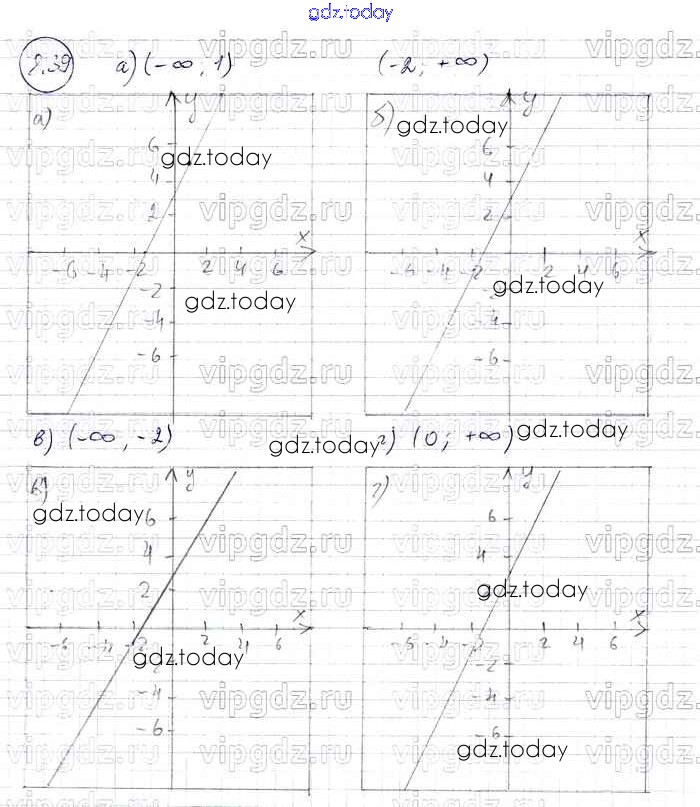 gdz.today
8.39 а) (-∞, 1) (-2; +∞)
а) y б) gdz.today
6 6
gdz.today
4 4
2 2
x x
-6 -4 -2 2 4 6 -6 -4 -2 2 4 6
-2 gdz.today
gdz.today
-4 -4
-6 -6
в) (-∞, -2) gdz.today г) (0; +∞) gdz.today
в) y г) y
gdz.today 6 6
4 4
2 gdz.today
x x
-6 -4 -2 2 4 6 -6 -4 -2 2 4 6
gdz.today -2
-4 -4
-6
gdz.today
vipgdz.ru